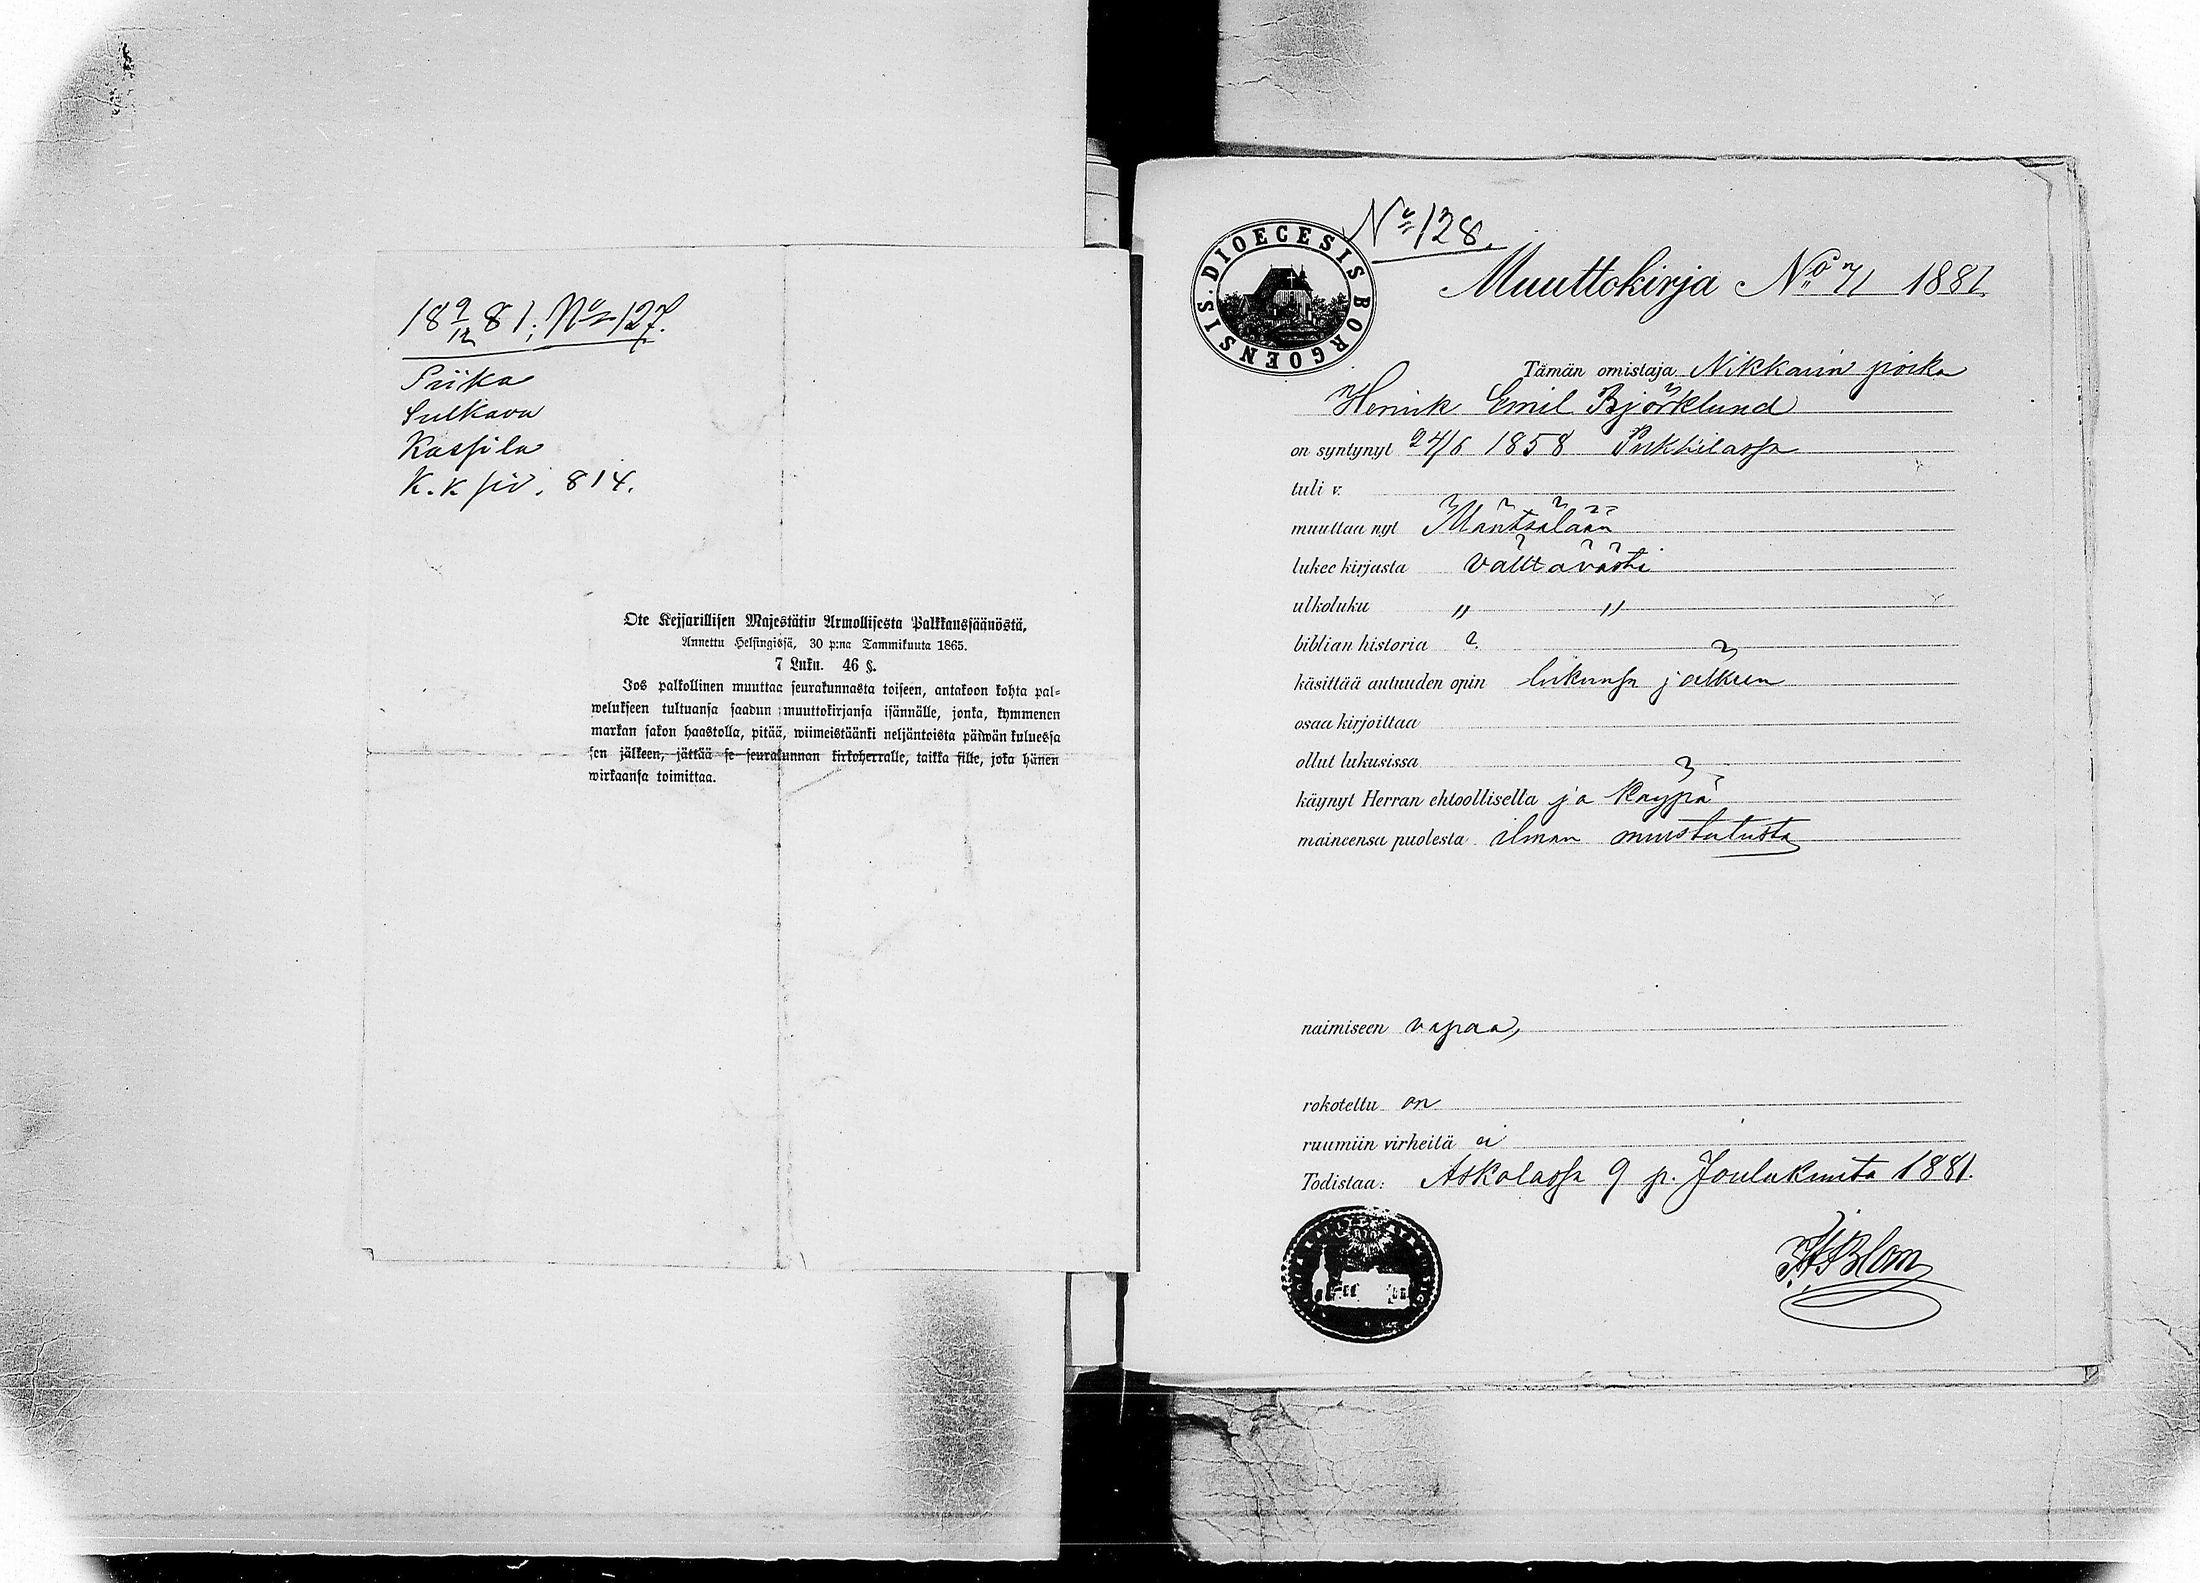 18 9/12 81; No 127.
Piika
Sulkava
Kaspila
K.k siv. 814.
Ote Kejsarillisen Majestätin Armollisesta Palkkaussäänöstä,
Annettu Helsingissä, 30 p:na Tammikuuta 1865.
7 Luku. 46 §.
Jos palkollinen muuttaa seurakunnasta toiseen, antakoon kohta pal-
welukseen tultuansa saadun muuttokirjansa isännälle, jonka, kymmenen
markan sakon haastolla, pitää, wiimeistäänki neljäntoista päiwän kuluessa
sen jälkeen, jättää se seurakunnan kirkoherralle, taikka sille, joka hänen
wirkaansa toimittaa.
No 128.
DIOECESIS BORGOENSIS.
Muuttokirja No 71 1881.
Tämän omistaja Nikkarin poika
Henrik Emil Björklund
on syntynyt 24/6 1858 Pukkilassa
tuli v.
muuttaa nyt Mäntsälään
lukee kirjasta välttävästi
ulkoluku " "
biblian historia
käsittää autuuden opin lukunsa jälkeen
osaa kirjoittaa
ollut lukusissa
käynyt Herran ehtoollisella ja käypä
maineensa puolesta ilman muistutusta
naimiseen vapaa,
rokotettu on
ruumiin virheitä ei
Todistaa: Askolassa 9 p. Joulukuuta 1881.
Blom